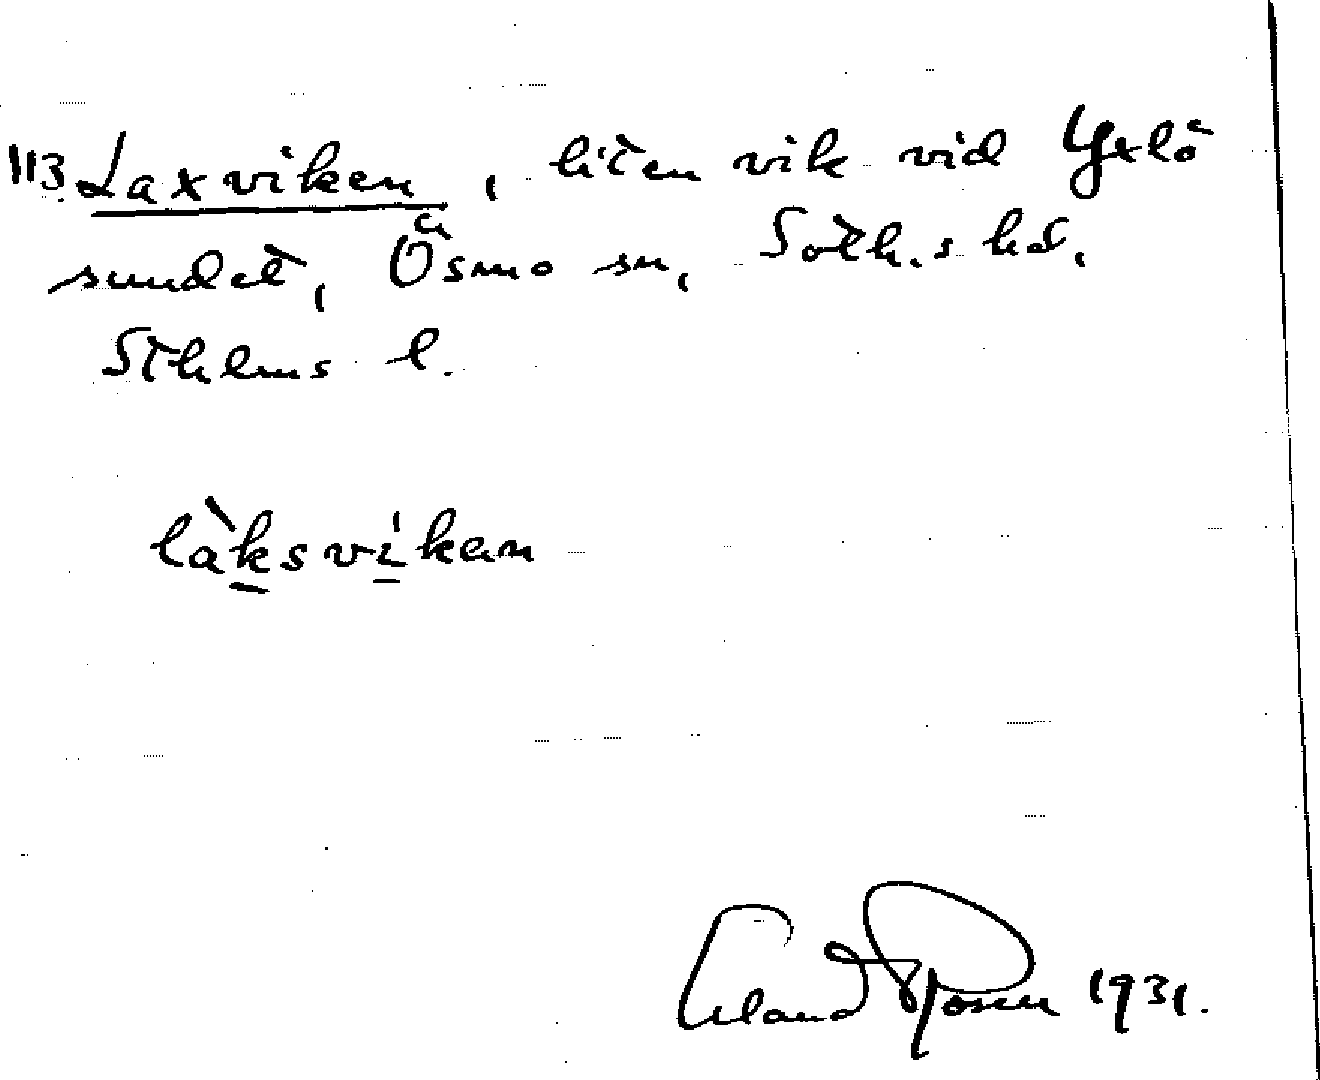 113. Laxviken, liten vik vid Yxlö
sundet, Ösmo sn, Soth.s hd,
Sthlms l.
làksvikan
Erland Rosen 1931.